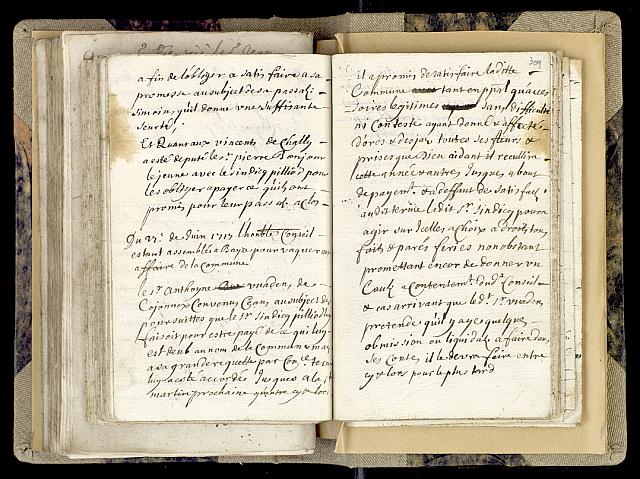 afin de l'obliger a satisfaire a sa
promesse au subject de sa passa[ti]-
qu'il donne une suffisante
seurté,
Et Quant aux vincents de Chailly
a esté deputé le sr. pierre Bonjour
le jeune avec le sindicq pilliod pour
les obliger a payer ce qu'ils ont
promis pour leur pass
Du de Juin 1713 l'honble Conseil
estant assemblés a Baye pour vaquer aux
affaire de la Commune
le sr. Anthoyne de
Cojonnox Convenus Cyans au subject des
poursuittes que le sr. sindicq pilliod luy
faisoit pour estre payé de ce qui luy
est deub au nom de la Commune
a sa grande requelle par
luy a esté accordés Jusques a la st
martin prochaine qu'entre cy et lors
309
il a promis de satisfaire laditte
Commune tant en ppal qu'acces-
soires legitimes sans difficulté
ni Conteste ayant donné & affecté
d'ores & desja toutes ses fleurs &
prises que Dieu aidant il recullira
cette année & autres Jusques a bout
de payemt. & a deffaut de satisfact.
audit terme ledit sr. sindicq pourra
agir sur Icelles a choix a droit ton
fait & parés feries nonobstant
promettant encor de donner un
a Contentemt. dud. Conseil
& cas arrivant que le d. sr.
pretende qu'il y aye quelque
obmission ou liquidat. a faire dans
ses Conte, il le devra faire entre
cy & lors pour le plus tard